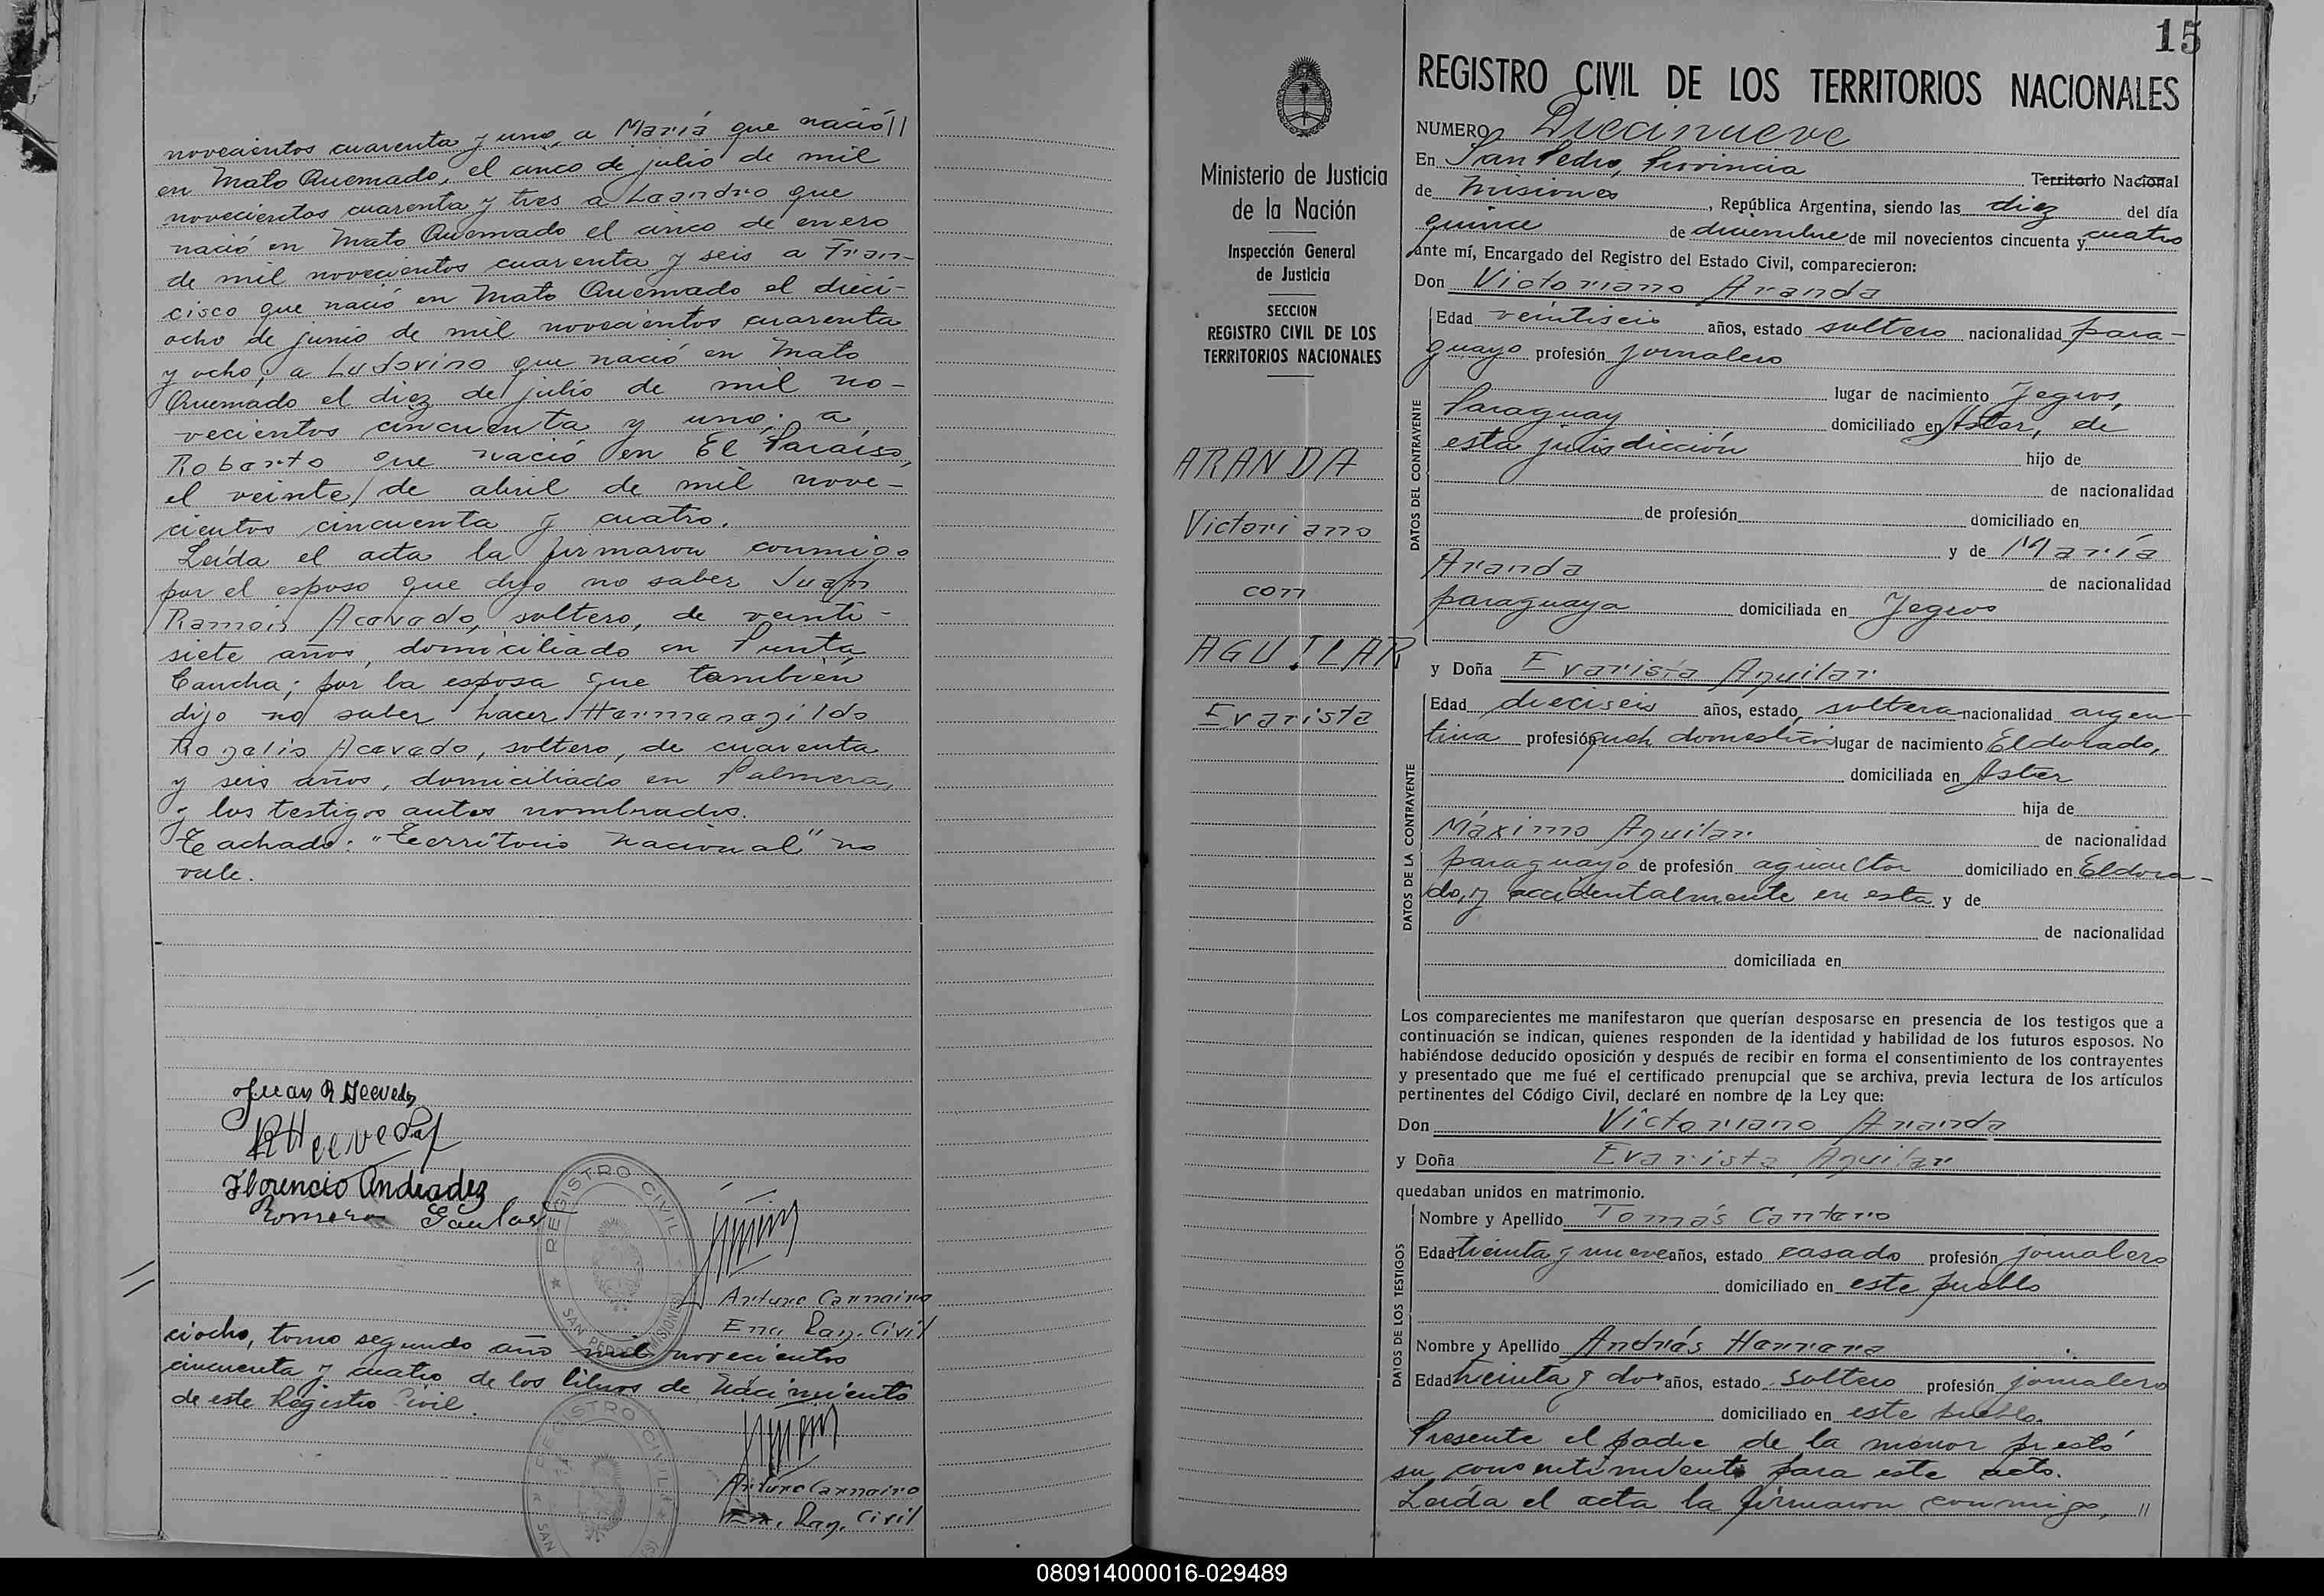 novecientos cuarenta y uno, a María que nació //
en Mato Quemado, el cinco de julio de mil
novecientos cuarenta y tres a Leandro que
nació en Mato Quemado el cinco de enero
de mil novecientos cuarenta y seis a Fran-
cisco que nació en Mato Quemado el dieci-
ocho de junio de mil novecientos cuarenta
y ocho, a Ludovino que nació en Mato
Quemado el diez de julio de mil no-
vecientos cincuenta y uno; a
Roberto que nació en El Paraíso,
el veinte de abril de mil nove-
cientos cincuenta y cuatro.
Leída el acta la firmaron conmigo
por el esposo que dijo no saber Juan
Ramón Acevedo, soltero, de veinti-
siete años, domiciliado en Punta
Cancha; por la esposa que también
dijo no saber hacer Hermenegildo
Rogelio Acevedo, soltero, de cuarenta
y seis años, domiciliado en Palmera,
y los testigos antes nombrados.
Tachado: "Territorio Nacional" no
vale.
Juan R Acevedo
Florencio Andradez
Romero
REGISTRO CIVIL
SAN PEDRO (MISIONES)
Arturo Carneiro
Enc. Reg. Civil
ciocho, tomo segundo año mil novecientos
cincuenta y cuatro de los libros de Nacimiento
de este Registro Civil.
REGISTRO CIVIL
SAN
Arturo Carneiro
Enc. Reg. Civil
15
Ministerio de Justicia
de la Nación
Inspección General
de Justicia
SECCION
REGISTRO CIVIL DE LOS
TERRITORIOS NACIONALES
ARANDA
Victoriano
con
AGUILAR
Evarista
REGISTRO CIVIL DE LOS TERRITORIOS NACIONALES
NUMERO Diecinueve
En San Pedro, Provincia Territorio Nacional
de Misiones, República Argentina, siendo las diez del día
quince de diciembre de mil novecientos cincuenta y cuatro
ante mí, Encargado del Registro del Estado Civil, comparecieron:
Don Victoriano Aranda
DATOS DEL CONTRAYENTE
Edad veintiseis años, estado soltero nacionalidad para-
guayo profesión jornalero
lugar de nacimiento Yegros,
Paraguay domiciliado en Aster, de
esta jurisdicción hijo de
de nacionalidad
de profesión domiciliado en
y de María
Aranda de nacionalidad
paraguaya domiciliada en Yegros
y Doña Evarista Aguilar
DATOS DE LA CONTRAYENTE
Edad dieciseis años, estado soltera nacionalidad argen-
tina profesión queh. domesticos lugar de nacimiento Eldorado,
domiciliada en Aster
hija de
Máximo Aguilar de nacionalidad
paraguayo de profesión agricultor domiciliado en Eldora-
do, y accidentalmente en esta y de
de nacionalidad
domiciliada en
Los comparecientes me manifestaron que querían desposarse en presencia de los testigos que a
continuación se indican, quienes responden de la identidad y habilidad de los futuros esposos. No
habiéndose deducido oposición y después de recibir en forma el consentimiento de los contrayentes
y presentado que me fué el certificado prenupcial que se archiva, previa lectura de los artículos
pertinentes del Código Civil, declaré en nombre de la Ley que:
Don Victoriano Aranda
y Doña Evarista Aguilar
quedaban unidos en matrimonio.
DATOS DE LOS TESTIGOS
Nombre y Apellido Tomás Cantero
Edad treinta y nueve años, estado casado profesión jornalero
domiciliado en este pueblo
Nombre y Apellido Andrés Herrera
Edad treinta y dos años, estado soltero profesión jornalero
domiciliado en este pueblo.
Presente el padre de la menor prestó
su consentimiento para este acto.
Leída el acta la firmaron conmigo, //
080914000016-029489